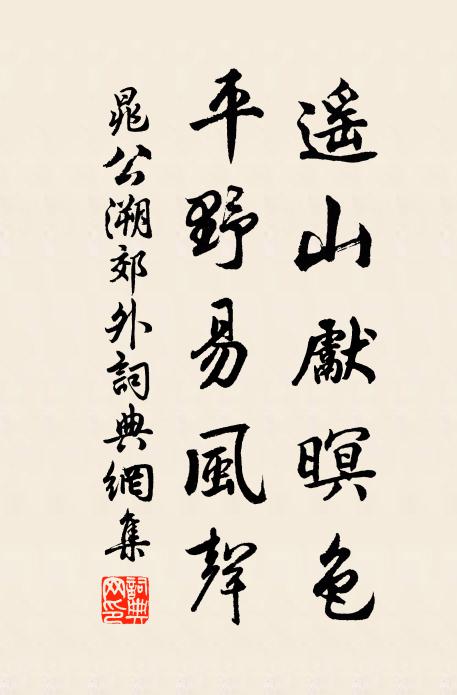 遥山獻暝色
平野易風聲
晁公溯郊外詞典網集
詞典
网印